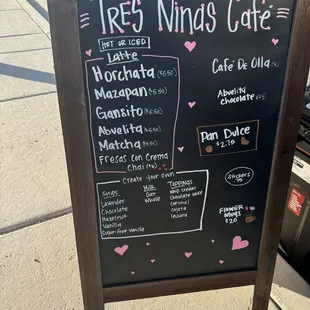 Tres Ninas Café
Hot or Iced
Latte
Horchata ($5.50)
Mazapan ($5.50)
Gansito ($5.50)
Abuelita ($5.50)
Matcha
Fresas Con Crema
Chai
Café De Olla
Abuelita
Chocolate
Pan Dulce
$2.75
Create your own
Syrups
Lavender
Chocolate
Hazelnut
Vanilla
Sugar-free Vanilla
Milk
Oat
Whole
Toppings
Whip cream
Chocolate sauce
Caramel
Cajeta
Stickers
Flower
Mugs
$20